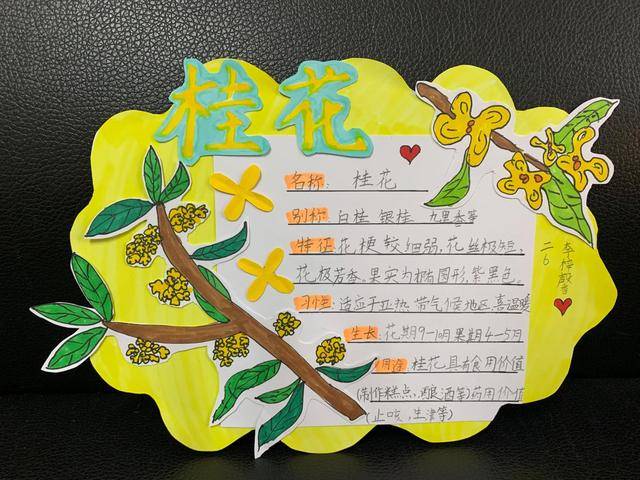 桂花
名称: 桂花
别称 白桂 银桂 九里香等
特征 花,梗较细弱,花丝极短,
花极芳香.果实为椭圆形,紫黑色。
习性:适应于亚热带气候地区.喜温暖
生长:花期9-10月果期4-5月
用途 桂花具有食用价值
(制作糕点,酿酒等)药用价值
(止咳,生津等)
二6
李梓